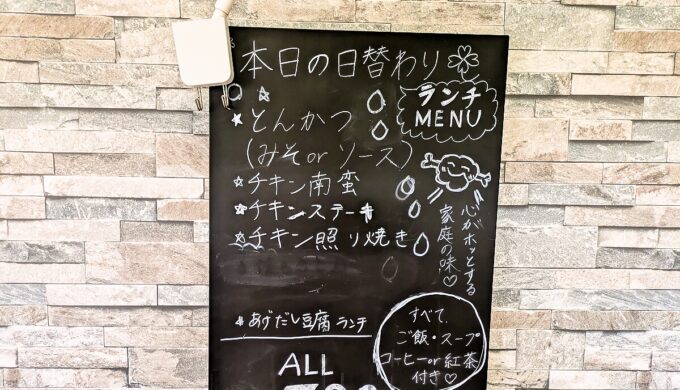 本日の日替わり
ランチ
MENU
とんかつ
(みそ or ソース)
チキン南蛮
チキンステーキ
チキン照り焼き
心がホッとする
家庭の味♡
あげだし豆腐ランチ
すべて
ご飯・スープ
コーヒーor紅茶
付き♡
ALL